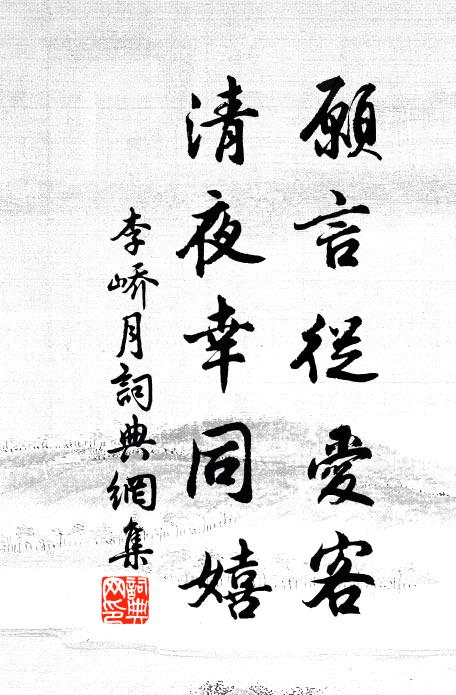 願言從愛客
清夜幸同嬉
李嶠月詞典網集
詞典